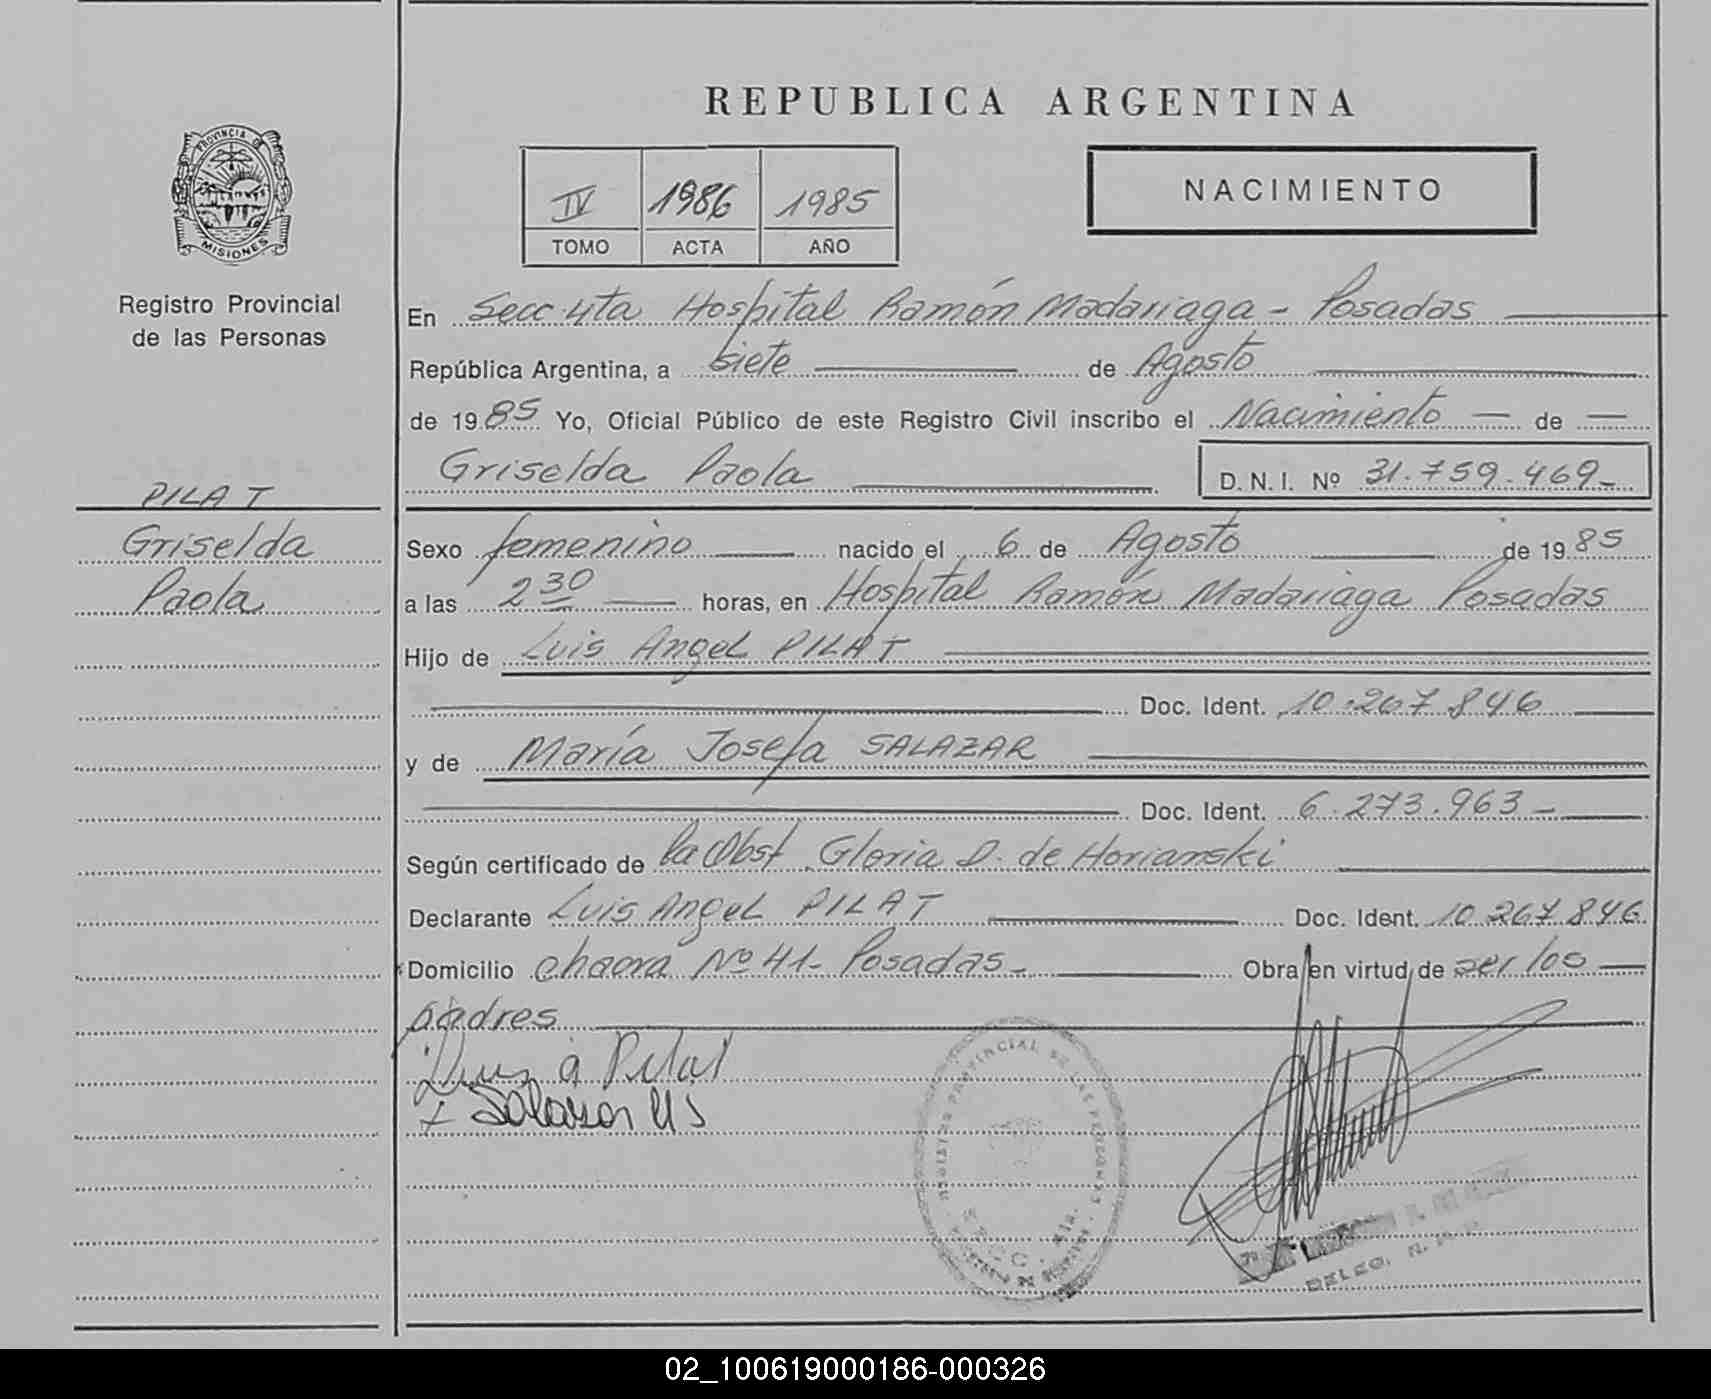 REPUBLICA ARGENTINA
PROVINCIA DE
MISIONES
Registro Provincial
de las Personas
IV 1986 1985
TOMO ACTA AÑO
NACIMIENTO
En Secc 4ta Hospital Ramón Madariaga - Posadas
República Argentina, a siete de Agosto
de 1985 Yo, Oficial Público de este Registro Civil inscribo el Nacimiento de
Griselda Paola D. N. I. Nº 31.759.469
PILAT
Griselda
Paola
Sexo femenino nacido el 6 de Agosto de 1985
a las 2 30 horas, en Hospital Ramón Madariaga Posadas
Hijo de Luis Angel PILAT
Doc. Ident. 10.267.846
y de María Josefa SALAZAR
Doc. Ident. 6.273.963
Según certificado de la Obst Gloria D. de Horianski
Declarante Luis Angel PILAT Doc. Ident. 10.267.846
Domicilio chacra Nº 41- Posadas- Obra en virtud de ser los
padres
Luis a Pilat
Salazar MJ
REGISTRO PROVINCIAL DE LAS PERSONAS
DELEG. R. P. P.
02_100619000186-000326